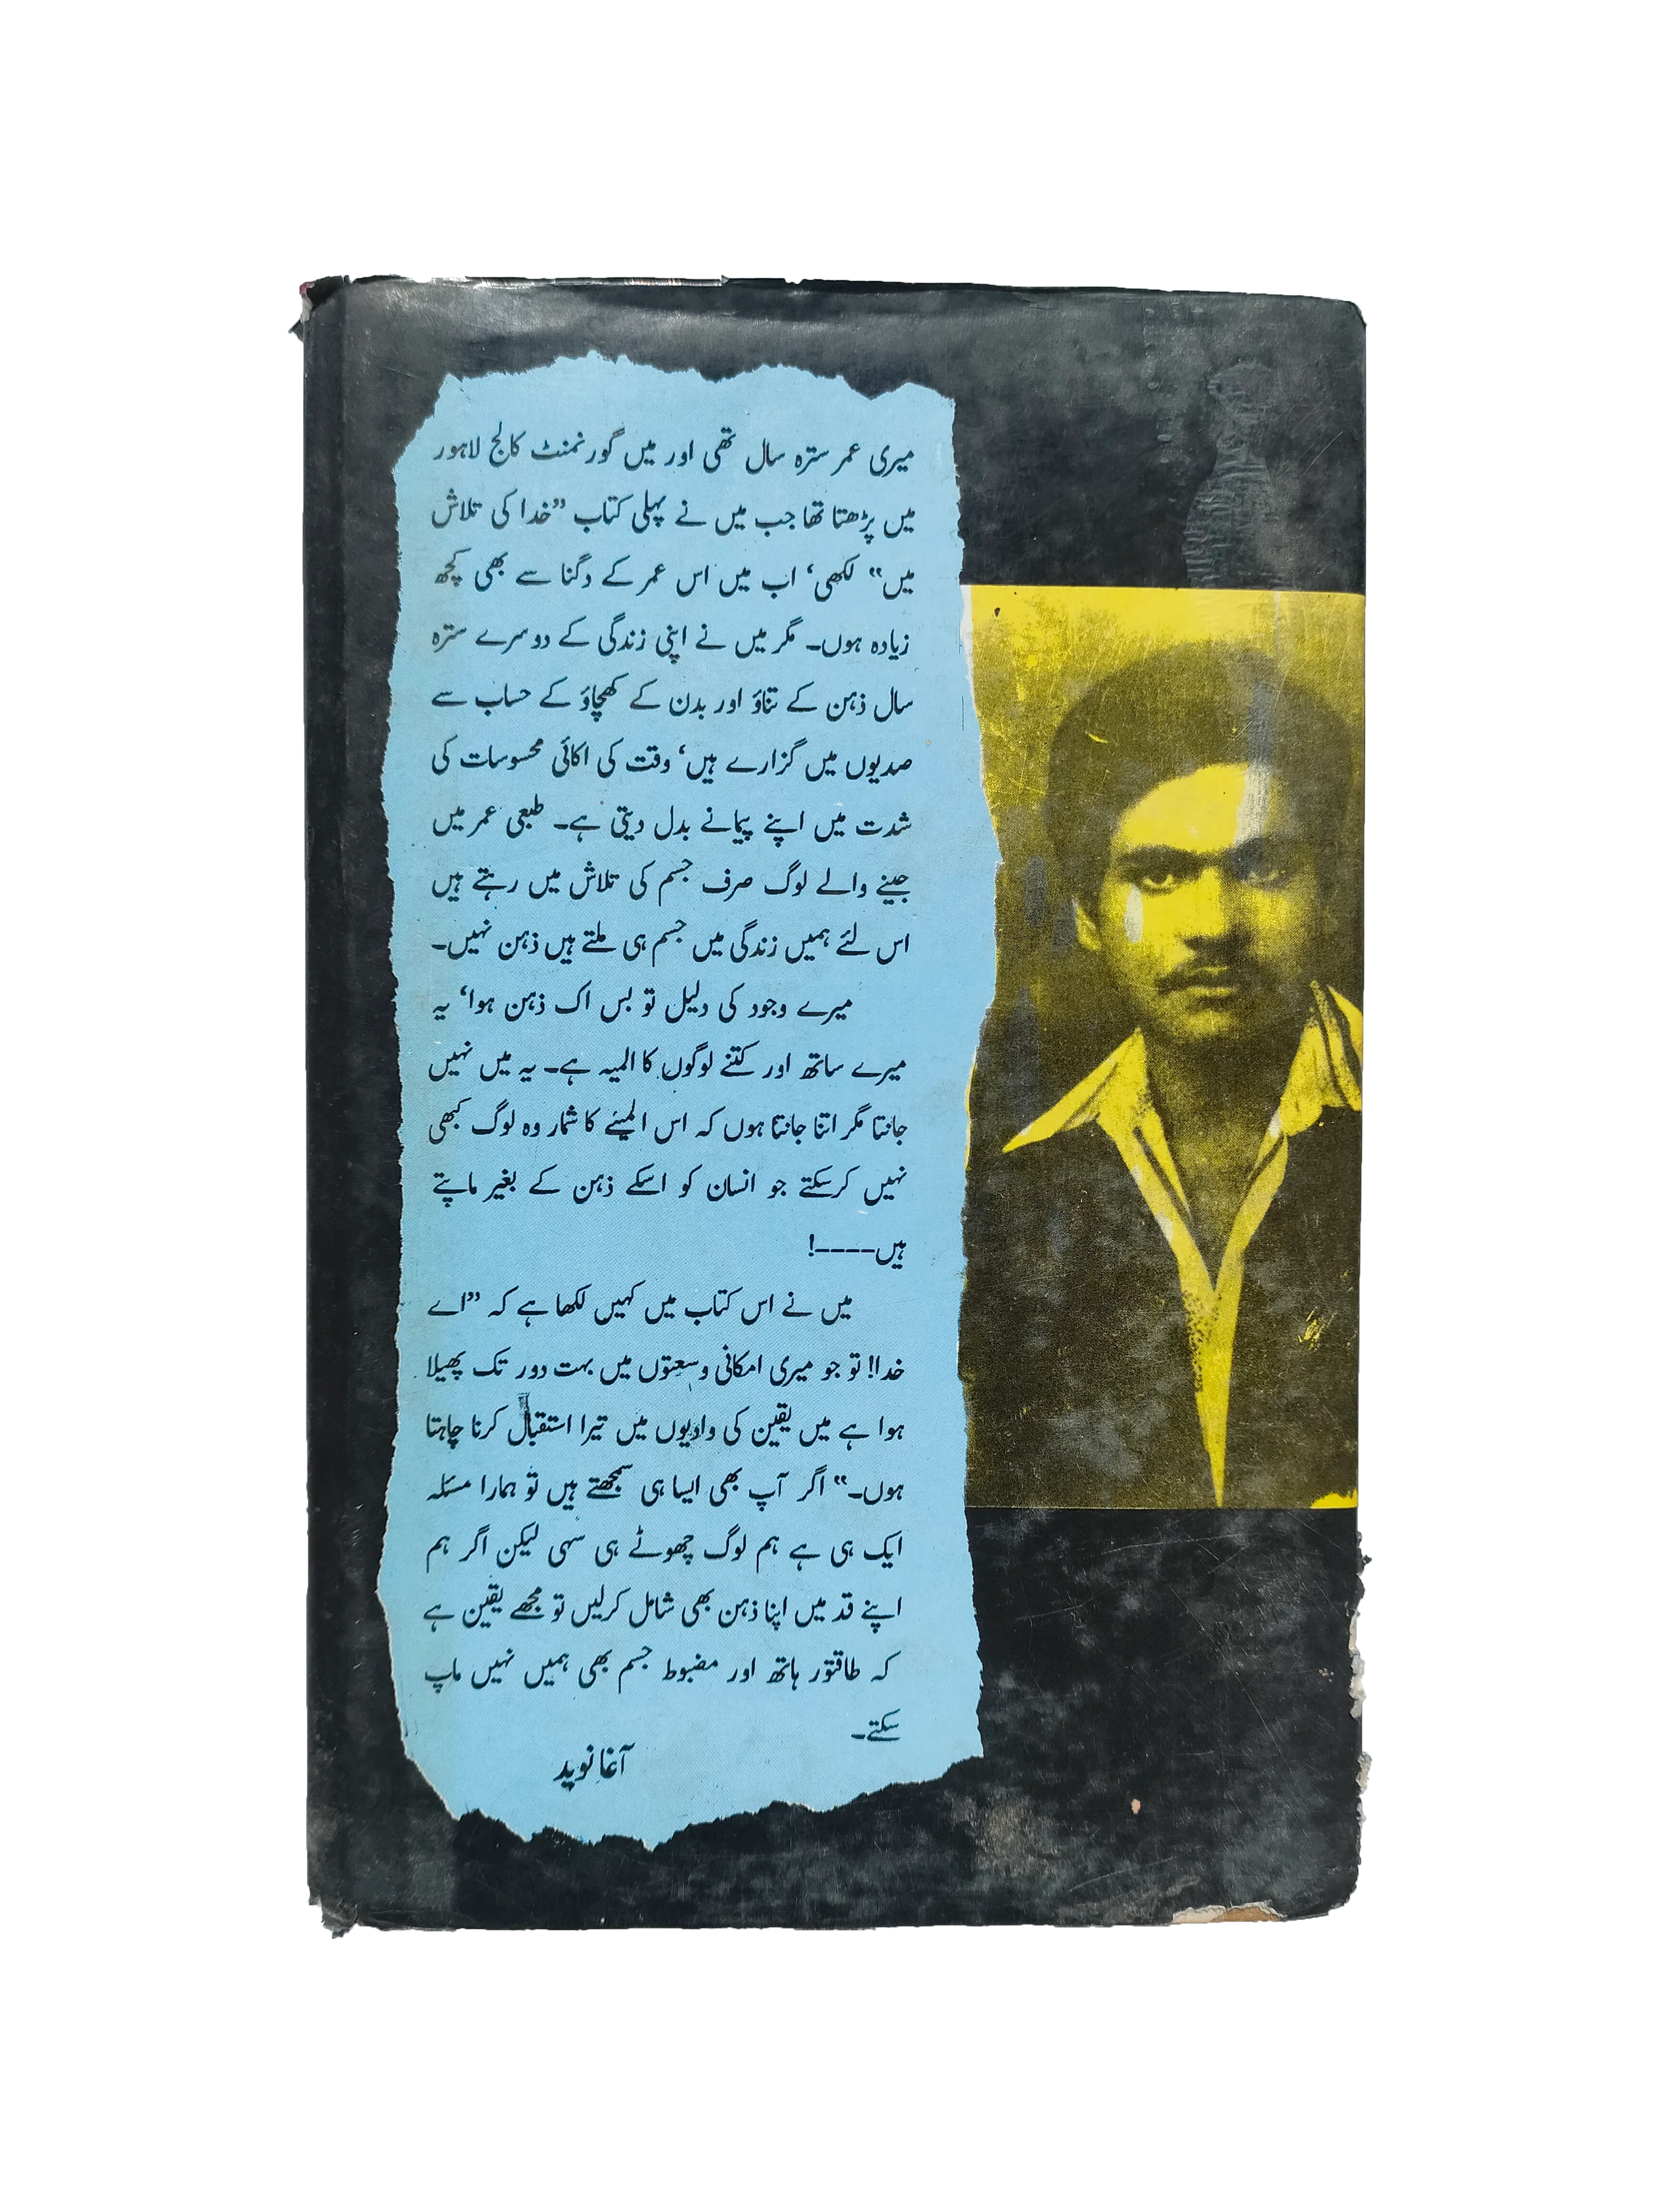 میری عمر سترہ سال تھی اور میں گورنمنٹ کالج لاہور
میں پڑھتا تھا جب میں نے پہلی کتاب ”خدا کی تلاش
میں“ لکھی‘ اب میں اس عمر کے دگنا سے بھی کچھ
زیادہ ہوں۔ مگر میں نے اپنی زندگی کے دوسرے سترہ
سال ذہن کے تناؤ اور بدن کے کھچاؤ کے حساب سے
صدیوں میں گزارے ہیں‘ وقت کی اکائی محسوسات کی
شدت میں اپنے پیمانے بدل دیتی ہے۔ طبعی عمر میں
جینے والے لوگ صرف جسم کی تلاش میں رہتے ہیں
اس لئے ہمیں زندگی میں جسم ہی ملتے ہیں ذہن نہیں۔
میرے وجود کی دلیل تو بس اک ذہن ہوا‘ یہ
میرے ساتھ اور کتنے لوگوں کا المیہ ہے۔ یہ میں نہیں
جانتا مگر اتنا جانتا ہوں کہ اس المیئے کا شمار وہ لوگ کبھی
نہیں کرسکتے جو انسان کو اسکے ذہن کے بغیر ماپتے
ہیں----!
میں نے اس کتاب میں کہیں لکھا ہے کہ ”اے
خدا! تو جو میری امکانی وسعتوں میں بہت دور تک پھیلا
ہوا ہے میں یقین کی وادیوں میں تیرا استقبال کرنا چاہتا
ہوں۔“ اگر آپ بھی ایسا ہی سمجھتے ہیں تو ہمارا مسئلہ
ایک ہی ہے ہم لوگ چھوٹے ہی سہی لیکن اگر ہم
اپنے قد میں اپنا ذہن بھی شامل کرلیں تو مجھے یقین ہے
کہ طاقتور ہاتھ اور مضبوط جسم بھی ہمیں نہیں ماپ
سکتے۔
آغا نوید